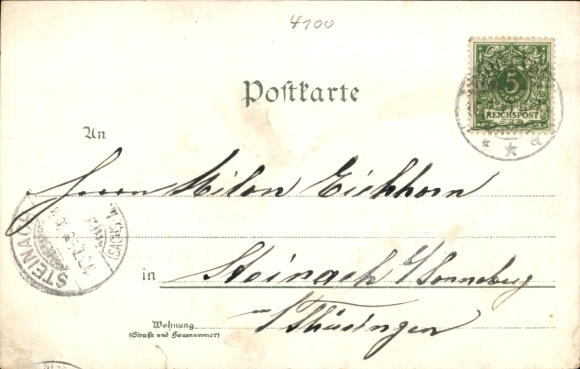 4100
Postkarte
5
REICHSPOST
An
Herrn Milon Eichhorn
STEINACH
in Steinach b/Sonneberg
i/Thüringen
Wohnung
(Straße und Hausnummer)